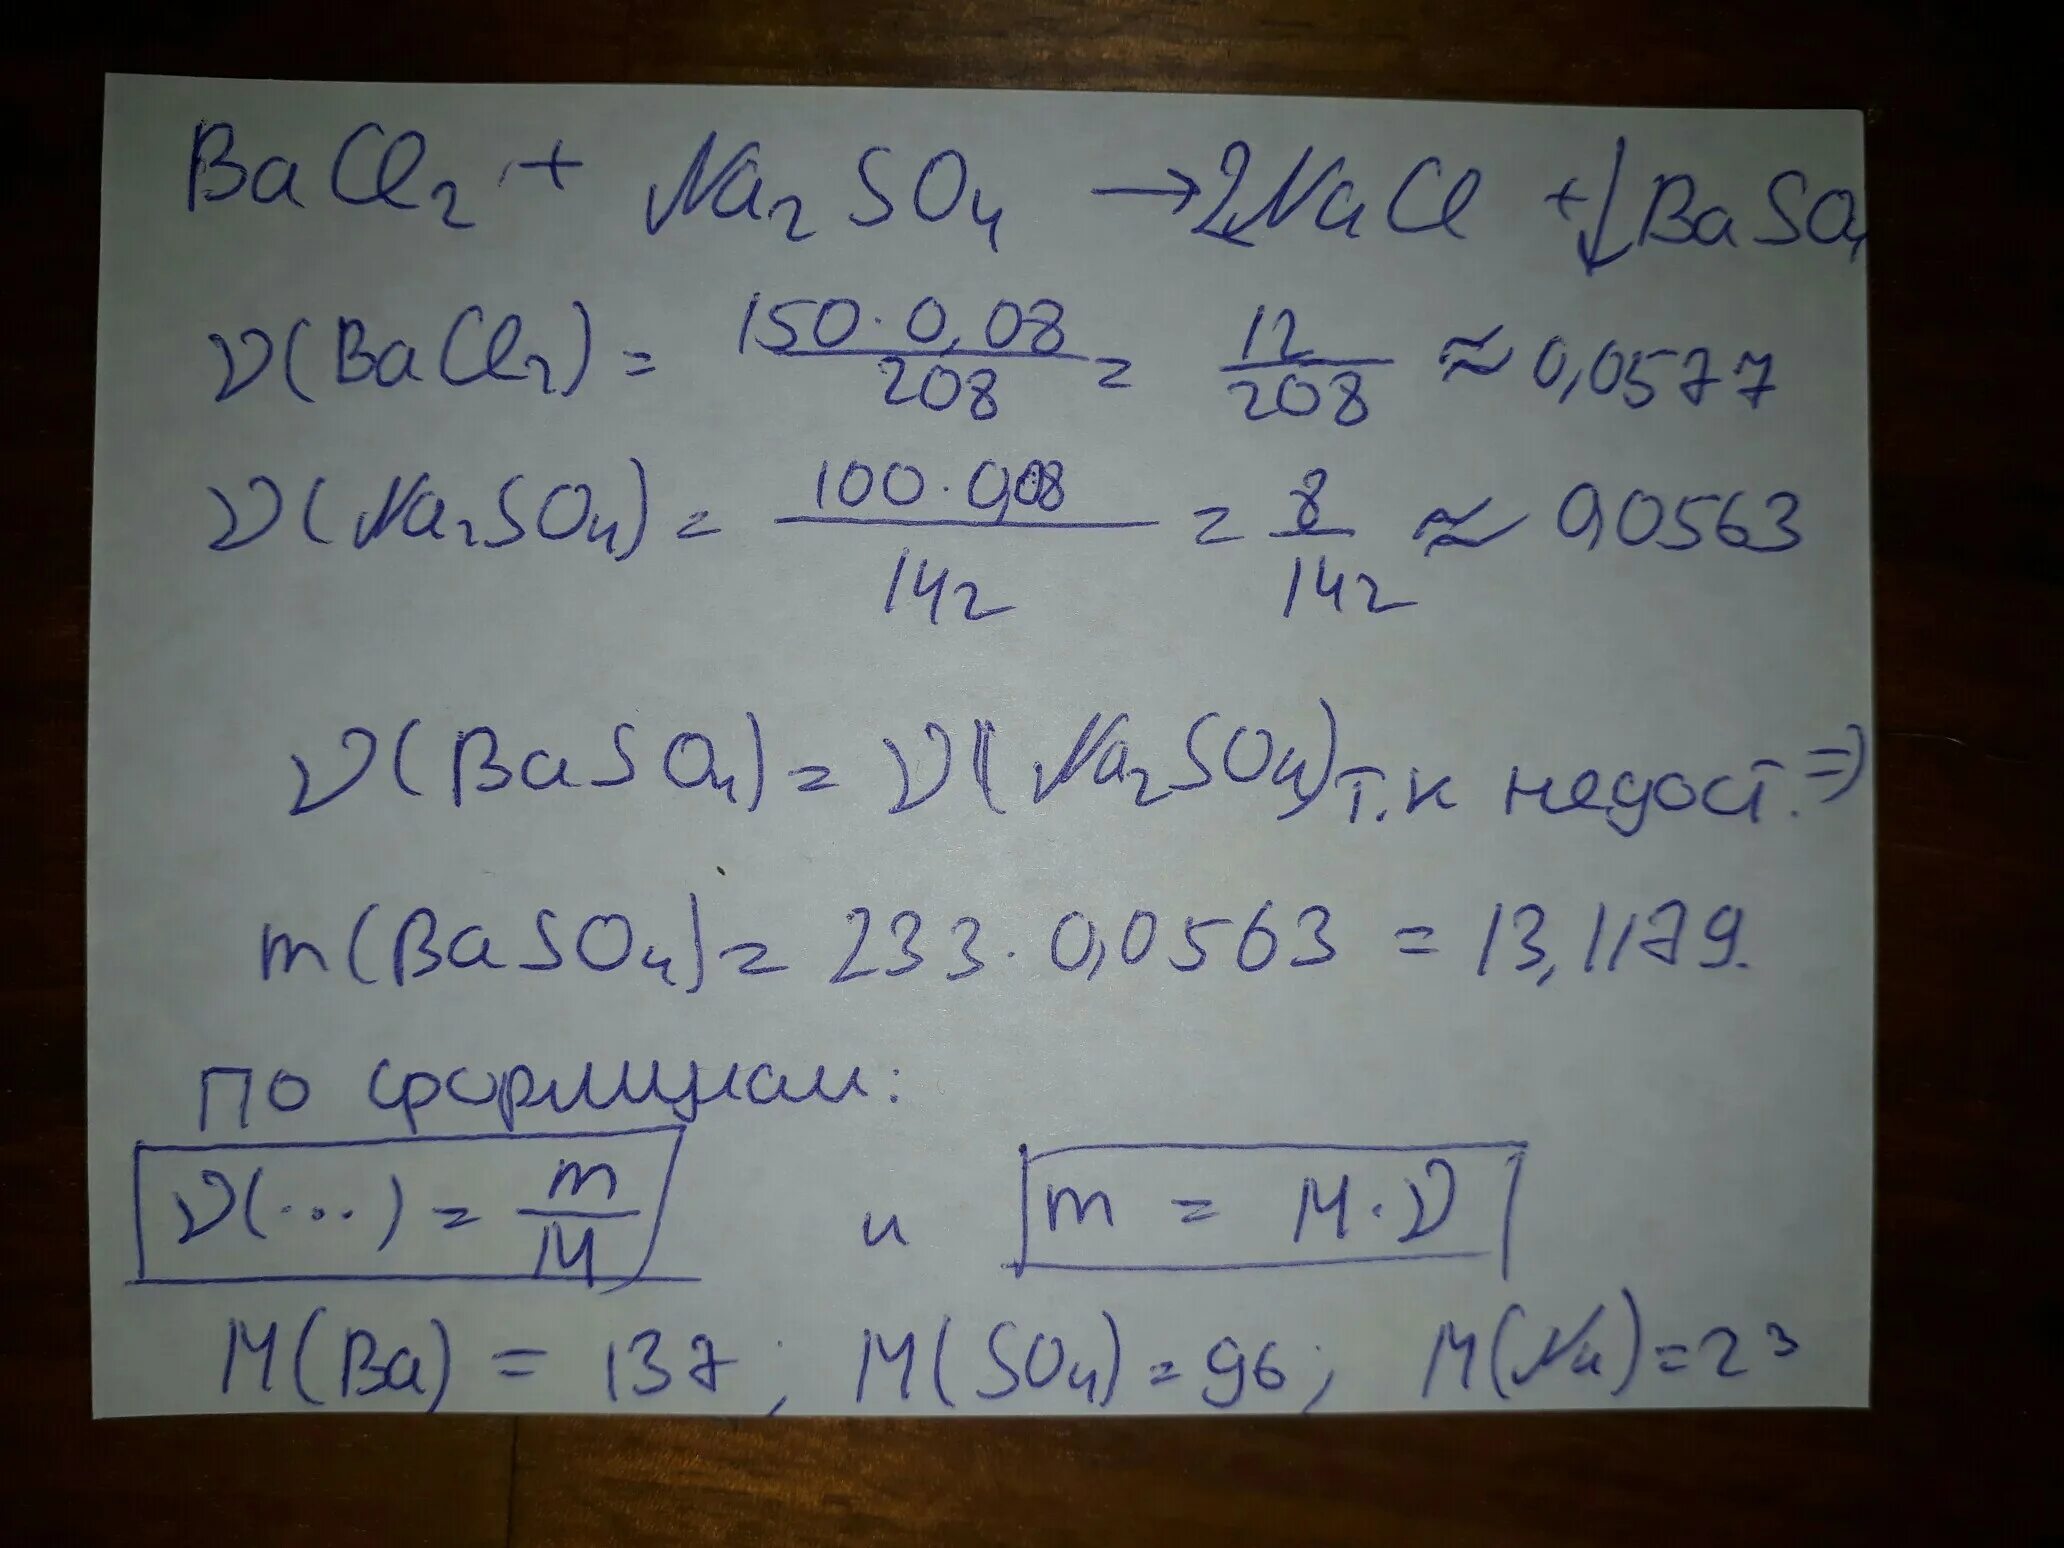 BaCl₂ + Na₂SO₄ → 2NaCl + ↓BaSO₄
ν(BaCl₂) = 150·0,08 / 208 = 12/208 ≈ 0,0577
ν(Na₂SO₄) = 100·0,08 / 142 = 8/142 ≈ 0,0563
ν(BaSO₄) = ν(Na₂SO₄) т.к недост. ⇒
m(BaSO₄) = 233·0,0563 = 13,1179.
по формулам:
ν(...) = m/M и m = M·ν
M(Ba) = 137; M(SO₄) = 96; M(Na) = 23